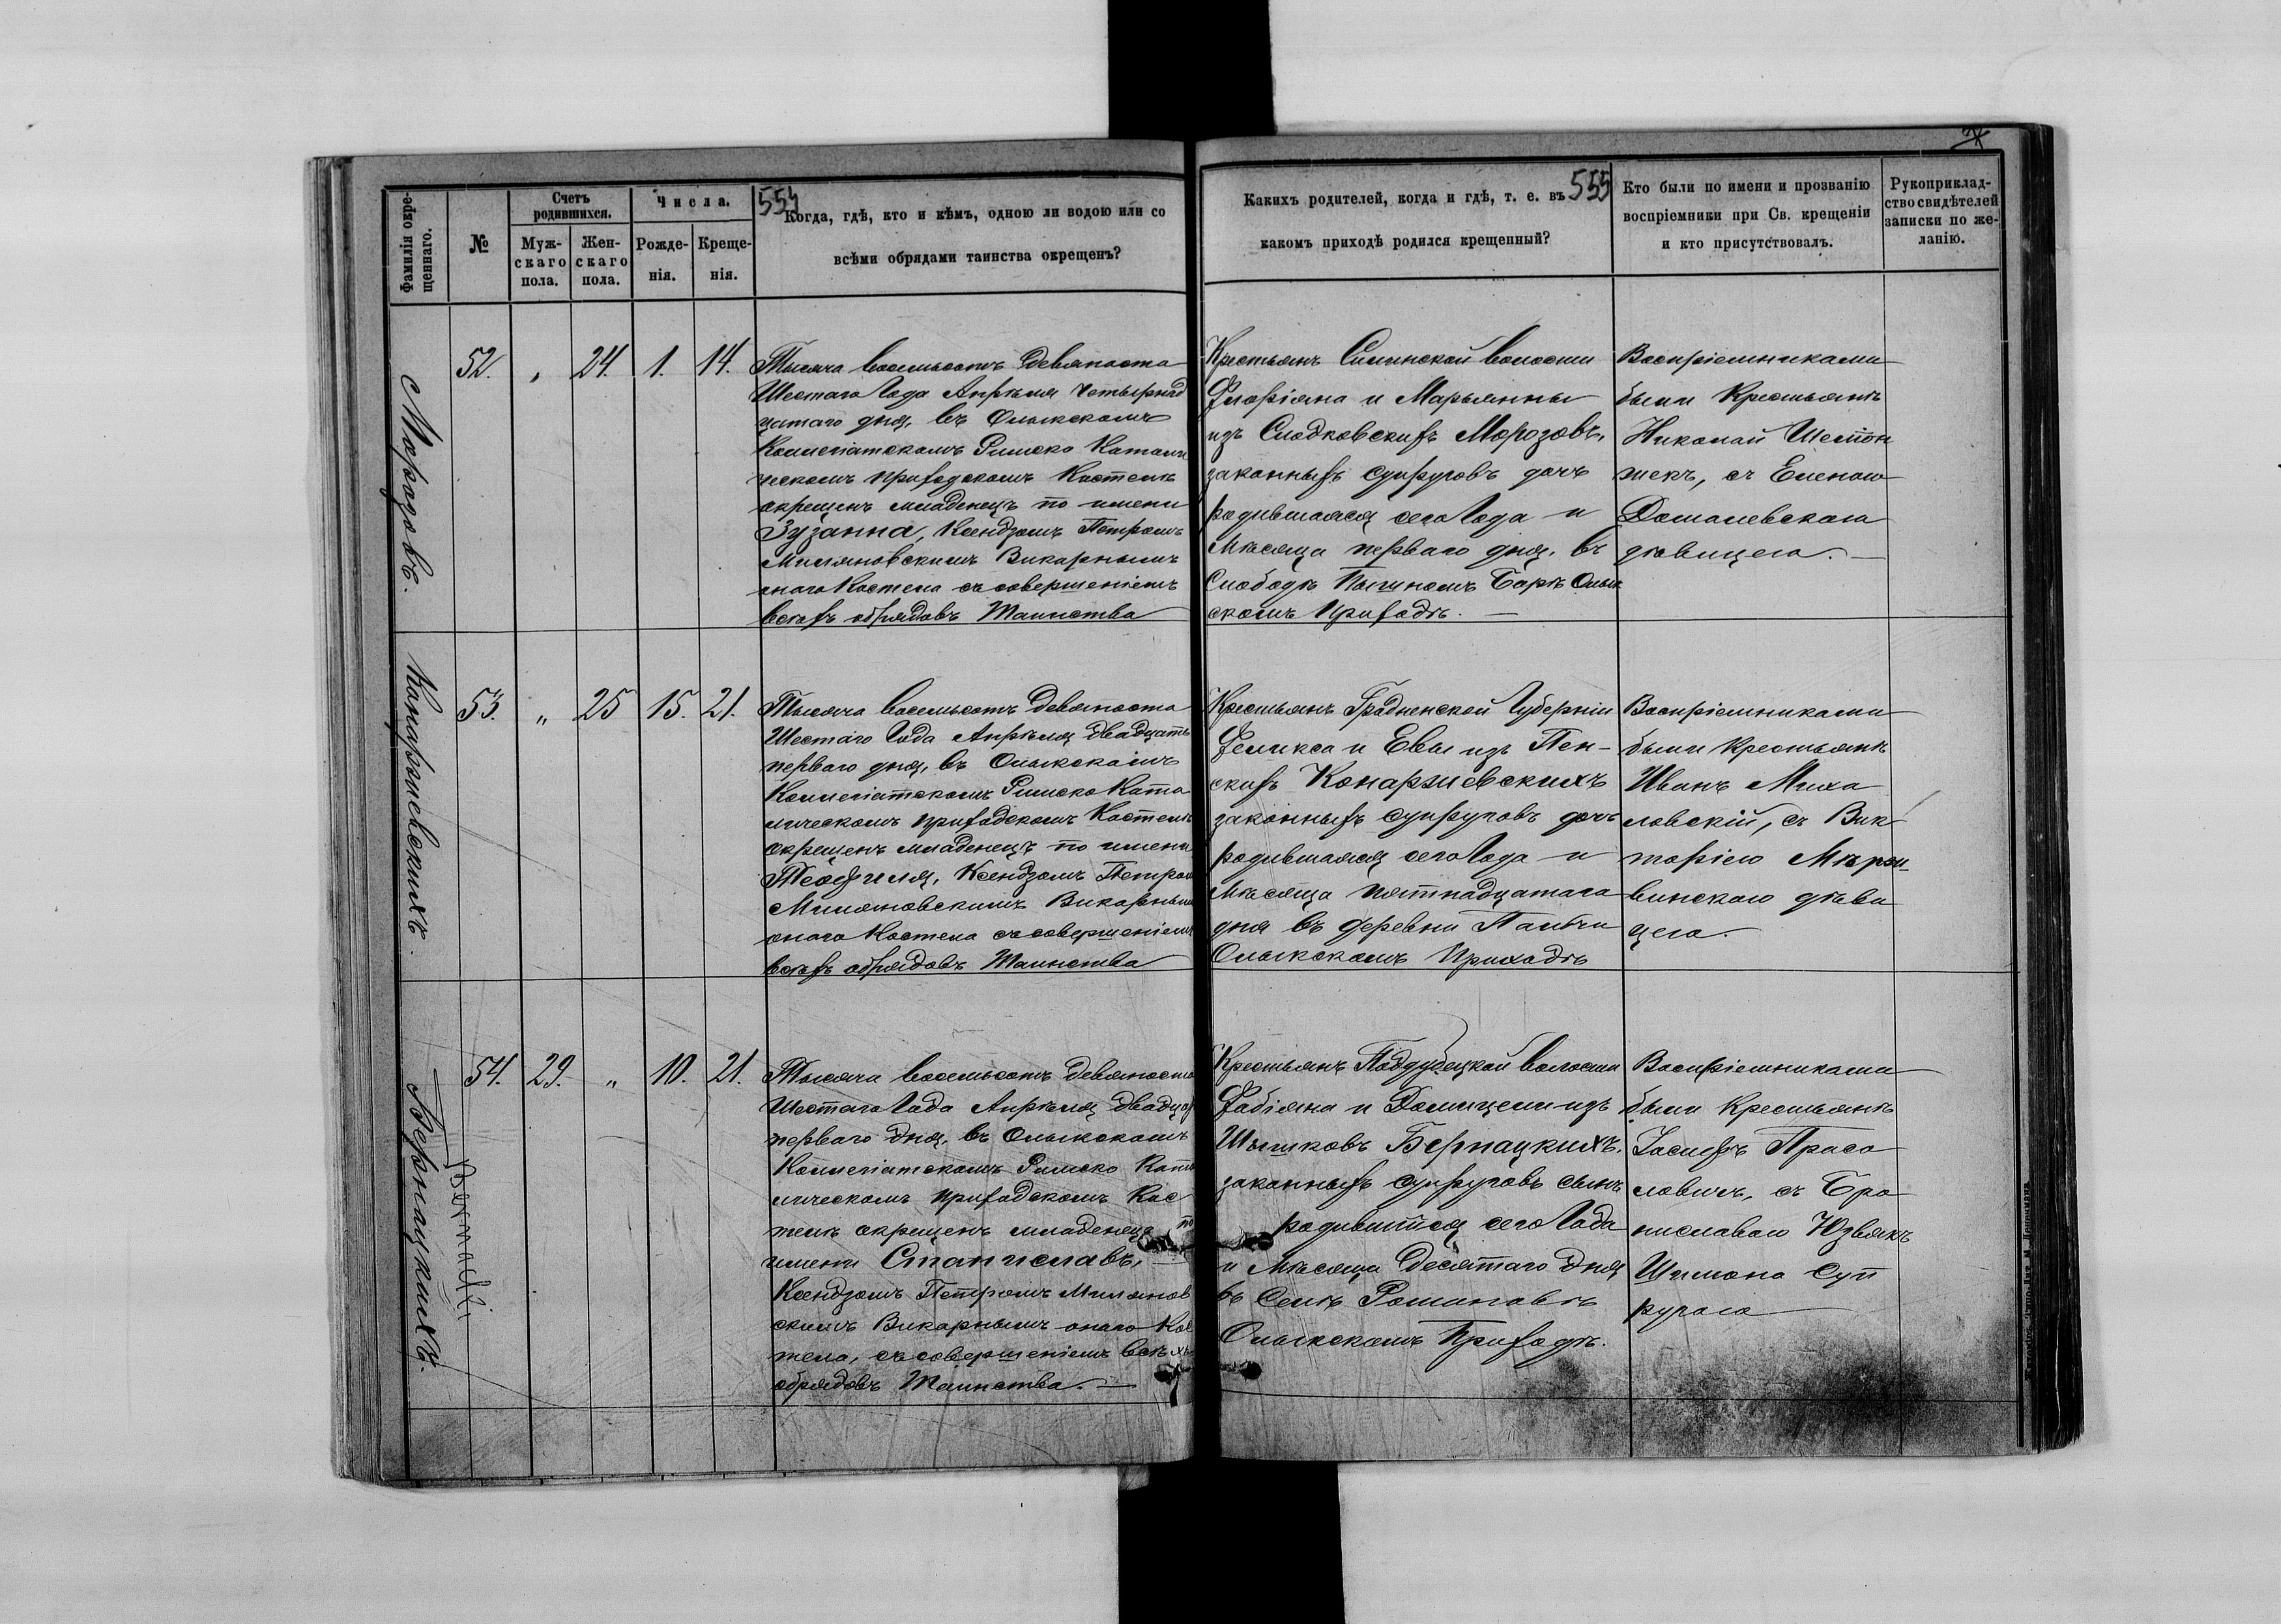 554
555
Фамилія окре-
щеннаго.
№
Счетъ
родившихся.
Муж-
скаго
пола.
Жен-
скаго
пола.
Числа.
Рожде-
нія.
Креще-
нія.
Когда, гдѣ, кто и кѣмъ, одною ли водою или со
всѣми обрядами таинства окрещенъ?
Какихъ родителей, когда и гдѣ, т. е. въ
какомъ приходѣ родился крещенный?
Кто были по имени и прозванію
воспріемники при Св. крещеніи
и кто присутствовалъ.
Рукоприклад-
ство свидѣтелей
записки по же-
ланію.
Морозовъ.
52. „ 24. 1. 14.
Тысяча восемьсотъ девяноста
Шестаго Года Апрѣля Четырнад
цатаго дня, въ Олыкскомъ
Коллегіатскомъ Римско Католи
ческомъ Приходскомъ Костелѣ
окрещенъ младенецъ по имени
Зузанна, Ксендзомъ Петромъ
Миляновскимъ Викарнымъ
онаго Костела съ совершеніемъ
всѣхъ обрядовъ Таинства
Крестьянъ Силинской волости
Флоріяна и Марьянны
изъ Слодковскихъ Морозовъ,
законныхъ супруговъ дочь
родившаяся сего Года и
Мѣсяца перваго дня, въ
Слободѣ Пыльномъ Барѣ Олык
скомъ Приходѣ. —
Воспріемниками
были Крестьянѣ
Николай
съ Еленою
Домалевскою
дѣвицею. —
Конаржевскихъ.
53. „ 25 15. 21.
Тысяча восемьсотъ девяноста
Шестаго Года Апрѣля двадцать
перваго дня, въ Олыкскомъ
Коллегіатскомъ Римско Като
лическомъ Приходскомъ Костелѣ
окрещенъ младенецъ по имени
Теофиля, Ксендзомъ Петромъ
Миляновскимъ Викарнымъ
онаго Костела съ совершеніемъ
всѣхъ обрядовъ Таинства
Крестьянъ Гродненской Губерніи
Феликса и Евы изъ Пен-
скихъ Конаржевскихъ
законныхъ супруговъ дочь
родившаяся сего Года и
Мѣсяца пятнадцатаго
дня въ деревни Палѣчи
Олыкскомъ Приходѣ
Воспріемниками
были Крестьянѣ
Иванъ Миха
ловскій, съ Вик
торіею
винскою дѣви
цею.
Бернацкихъ.
Bernacki
54. 29. „ 10. 21.
Тысяча восемьсотъ девяносто
Шестаго Года Апрѣля двадцать
перваго дня, въ Олыкскомъ
Коллегіатскомъ Римско Като
лическомъ Приходскомъ Кос
телѣ окрещенъ младенецъ по
имени Станиславъ, —
Ксендзомъ Петромъ Милянов
скимъ Викарнымъ онаго Кос
тела, съ совершеніемъ всѣхъ
обрядовъ Таинства. —
Крестьянъ Поддубецкой волости
Фабіяна и Домицели изъ
Шышковъ Бернацкихъ.
законныхъ супруговъ сынъ
родившійся сего Года
и Мѣсяца Десятаго дня
въ Селѣ Романовѣ
Олыкскомъ Приходѣ.
Воспріемниками
были Крестьянѣ
Іосифъ Прасо
ловичъ, съ Бро
ниславою Юзвякъ
Шимона Суп
ругою